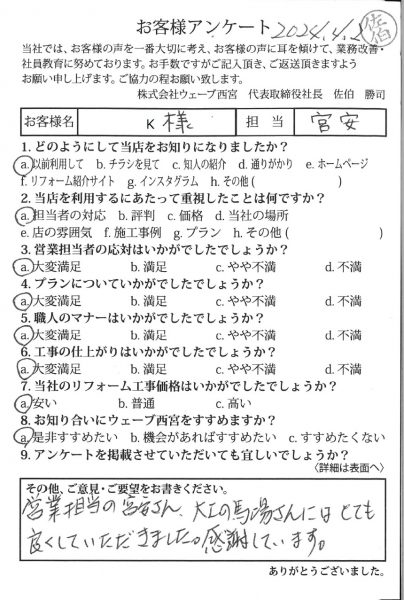 お客様アンケート 2024.4.8 佐伯
当社では、お客様の声を一番大切に考え、お客様の声に耳を傾けて、業務改善・
社員教育に努めております。お手数ですがご記入頂き、ご返送頂きますよう
お願い申し上げます。ご協力の程お願い致します。
株式会社ウェーブ西宮 代表取締役社長 佐伯 勝司
お客様名 K 様 担当 宮安
1. どのようにして当店をお知りになりましたか?
a.以前利用して b. チラシを見て c. 知人の紹介 d. 通りがかり e. ホームページ
f. リフォーム紹介サイト g. インスタグラム h. その他( )
2. 当店を利用するにあたって重視したことは何ですか?
a.担当者の対応 b. 評判 c. 価格 d. 当社の場所
e. 店の雰囲気 f. 施工事例 g. プラン h. その他( )
3. 営業担当者の応対はいかがでしたでしょうか?
a.大変満足 b. 満足 c. やや不満 d. 不満
4. プランについていかがでしたでしょうか?
a.大変満足 b. 満足 c. やや不満 d. 不満
5. 職人のマナーはいかがでしたでしょうか?
a.大変満足 b. 満足 c. やや不満 d. 不満
6. 工事の仕上がりはいかがでしたでしょうか?
a.大変満足 b. 満足 c. やや不満 d. 不満
7. 当社のリフォーム工事価格はいかがでしたでしょうか?
a.安い b. 普通 c. 高い
8. お知り合いにウェーブ西宮をすすめますか?
a.是非すすめたい b. 機会があればすすめたい c. すすめたくない
9. アンケートを掲載させていただいても宜しいでしょうか?
〈詳細は表面へ〉
その他、ご意見・ご要望をお書きください。
営業担当の宮安さん、大工の馬場さんにはとても
良くしていただきました。感謝しています。
ありがとうございました。